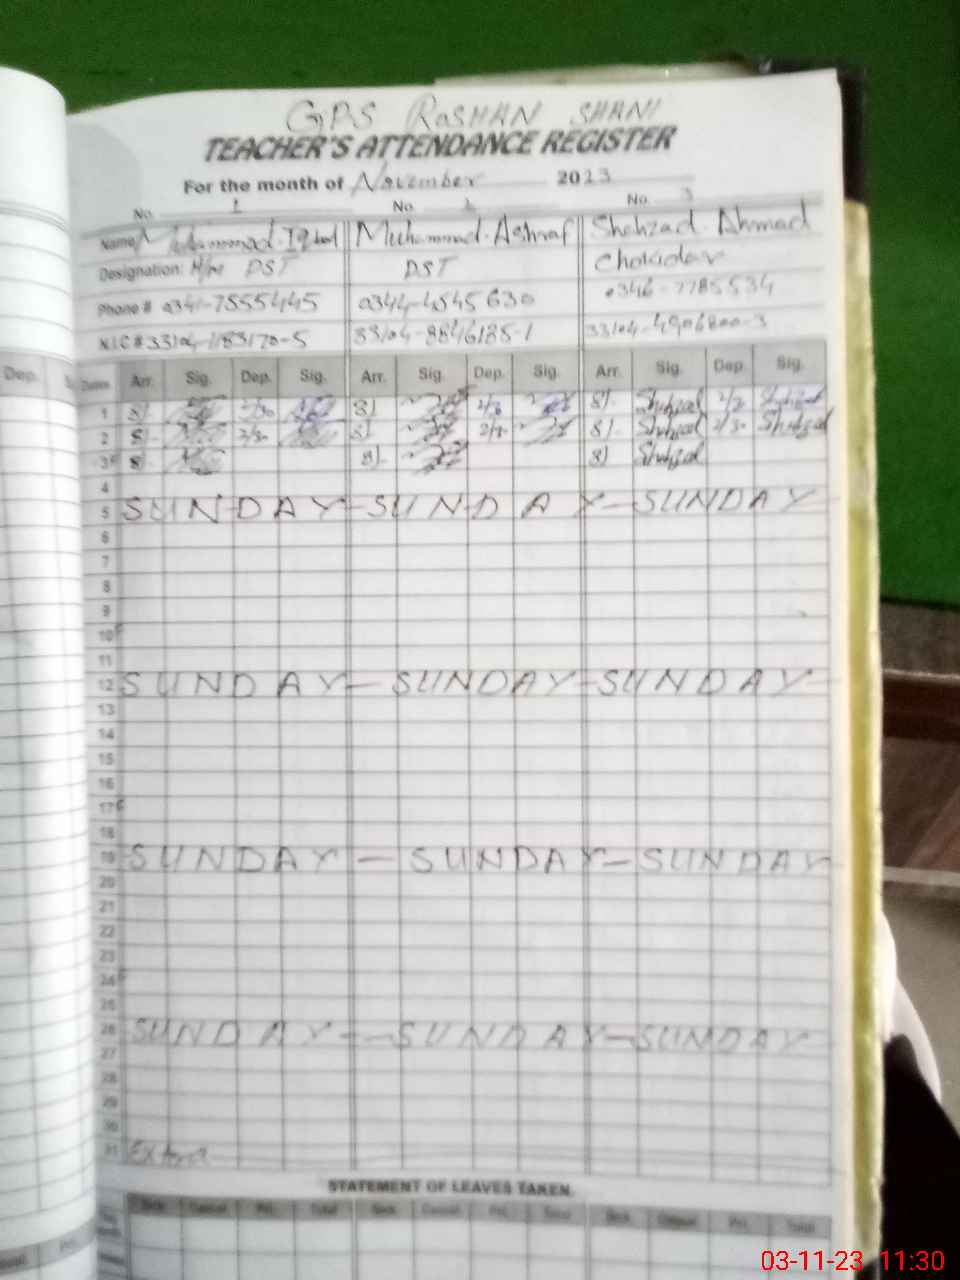 GPS ROSHAN SHANI
TEACHER'S ATTENDANCE REGISTER
For the month of November 2023
No. 1 No. 2 No. 3
Name Muhammad Iqbal Muhammad Ashraf Shahzad Ahmad
Designation: H/M PST PST Chokidar
Phone # 0341-7555445 0344-4545630 0346-7785534
N.I.C # 33104-1183170-5 33104-8846185-1 33104-4906800-3
Dep. Dates Arr. Sig. Dep. Sig. Arr. Sig. Dep. Sig. Arr. Sig. Dep. Sig.
1 8/. 2/30 8/. 8/. Shahzad Shahzad
2 8/. 2/30 8/. 8/. Shahzad 2/30 Shahzad
3 8/. 8/. 8/. Shahzad
4
5 SUNDAY - SUNDAY - SUNDAY
6
7
8
9
10
11
12 SUNDAY - SUNDAY - SUNDAY
13
14
15
16
17
18
19 SUNDAY - SUNDAY - SUNDAY
20
21
22
23
24
25
26 SUNDAY - SUNDAY - SUNDAY
27
28
29
30
31 Extra
STATEMENT OF LEAVES TAKEN
Sick Casual Pri. Total Sick Casual Pri. Total Sick Casual Pri. Total
03-11-23 11:30